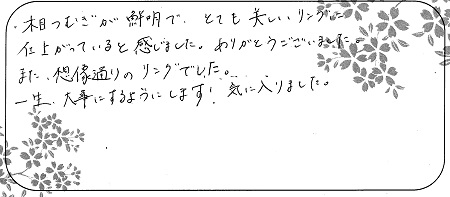 ・木目つむぎが鮮明で、とても美しいリングに
仕上がっていると感じました。ありがとうございました。
また、想像通りのリングでした。
一生、大事にするようにします！気に入りました。